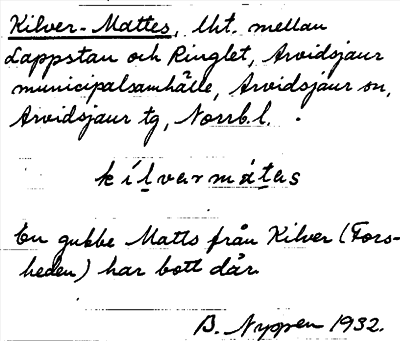 Kilver-Mattes, lht. mellan
Lappstan och Ringlet, Arvidsjaur
municipalsamhälle, Arvidsjaur sn,
Arvidsjaur tg, Norrb.l.
kílvarmátas
En gubbe Matts från Kilver (Fors-
heden) har bott där.
B. Nygren 1932.